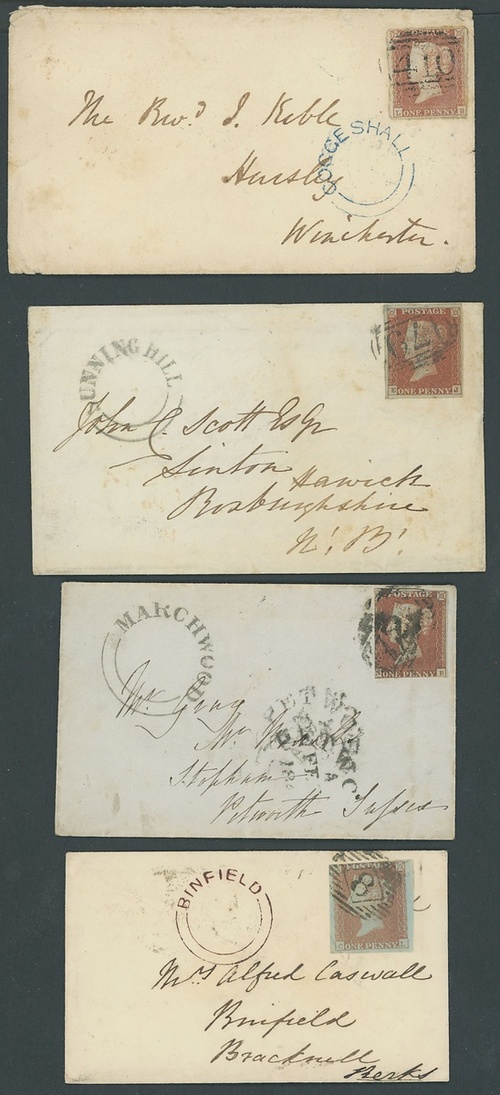 The Revd. J. Keble
Hursley
Winchester.
COGGESHALL
POSTAGE
ONE PENNY
SUNNING HILL
John C. Scott Esqr
Sinton Hawick
Roxburghshire
N. B.
POSTAGE
ONE PENNY
MARCHWOOD
Mr Gray
Stopham
Petworth Sussex
PETWORTH
POSTAGE
ONE PENNY
BINFIELD
Mrs Alfred Caswall
Binfield
Bracknell
Berks
8
ONE PENNY